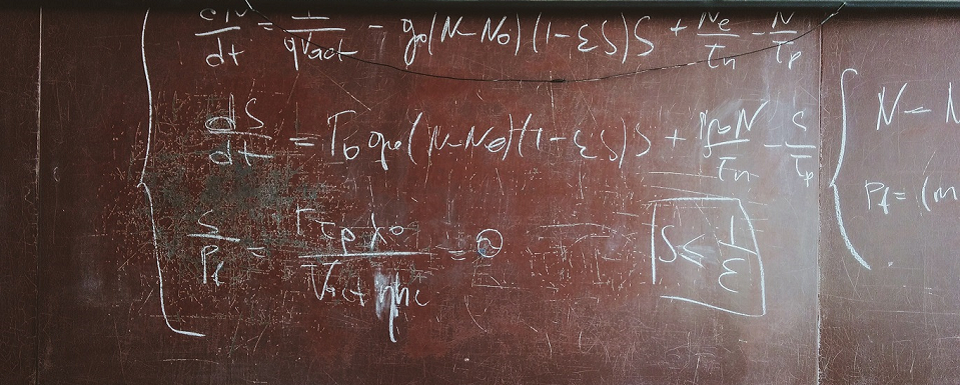 dN/dt = I/qVact - g₀(N-N₀)(1-εS)S + Ne/τn - N/τp
dS/dt = Γ₀ g₀(N-N₀)(1-εS)S + N/τn - S/τp
S/Pf = Γτpλ₀/Vact ηhc =
S ≤ 1/ε
N -
Pf = (m